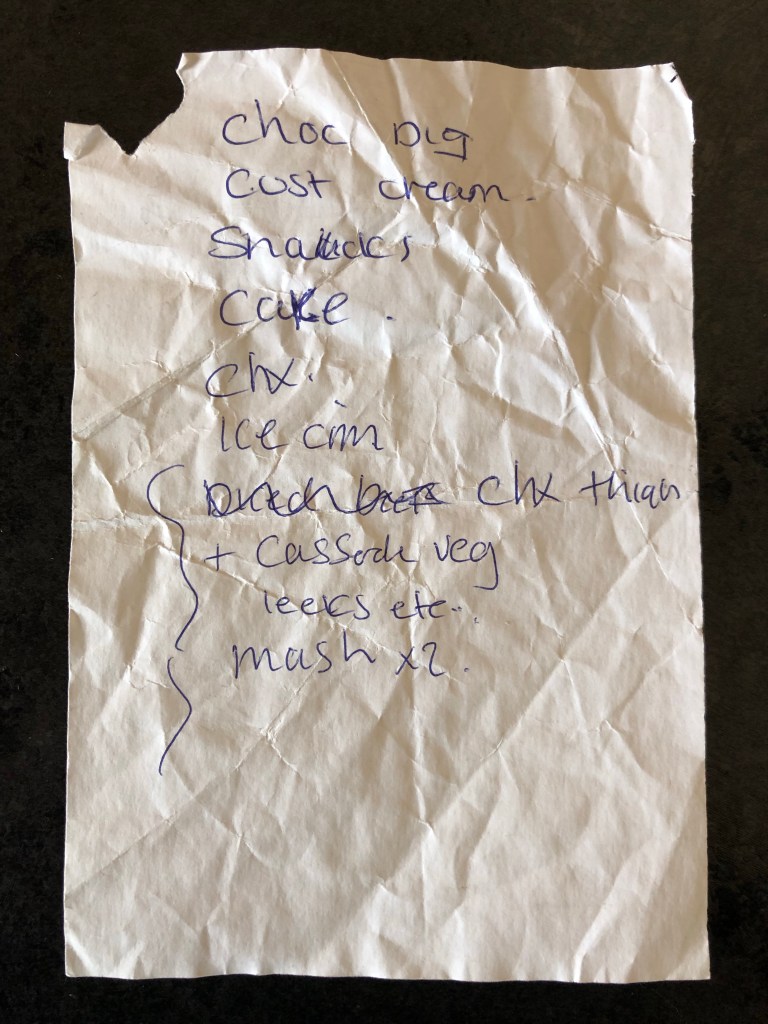 choc Dig
cust cream.
Snacks
cake.
chx.
ice crm
chx thigh
+ Casserole veg
leeks etc..
mash x2.